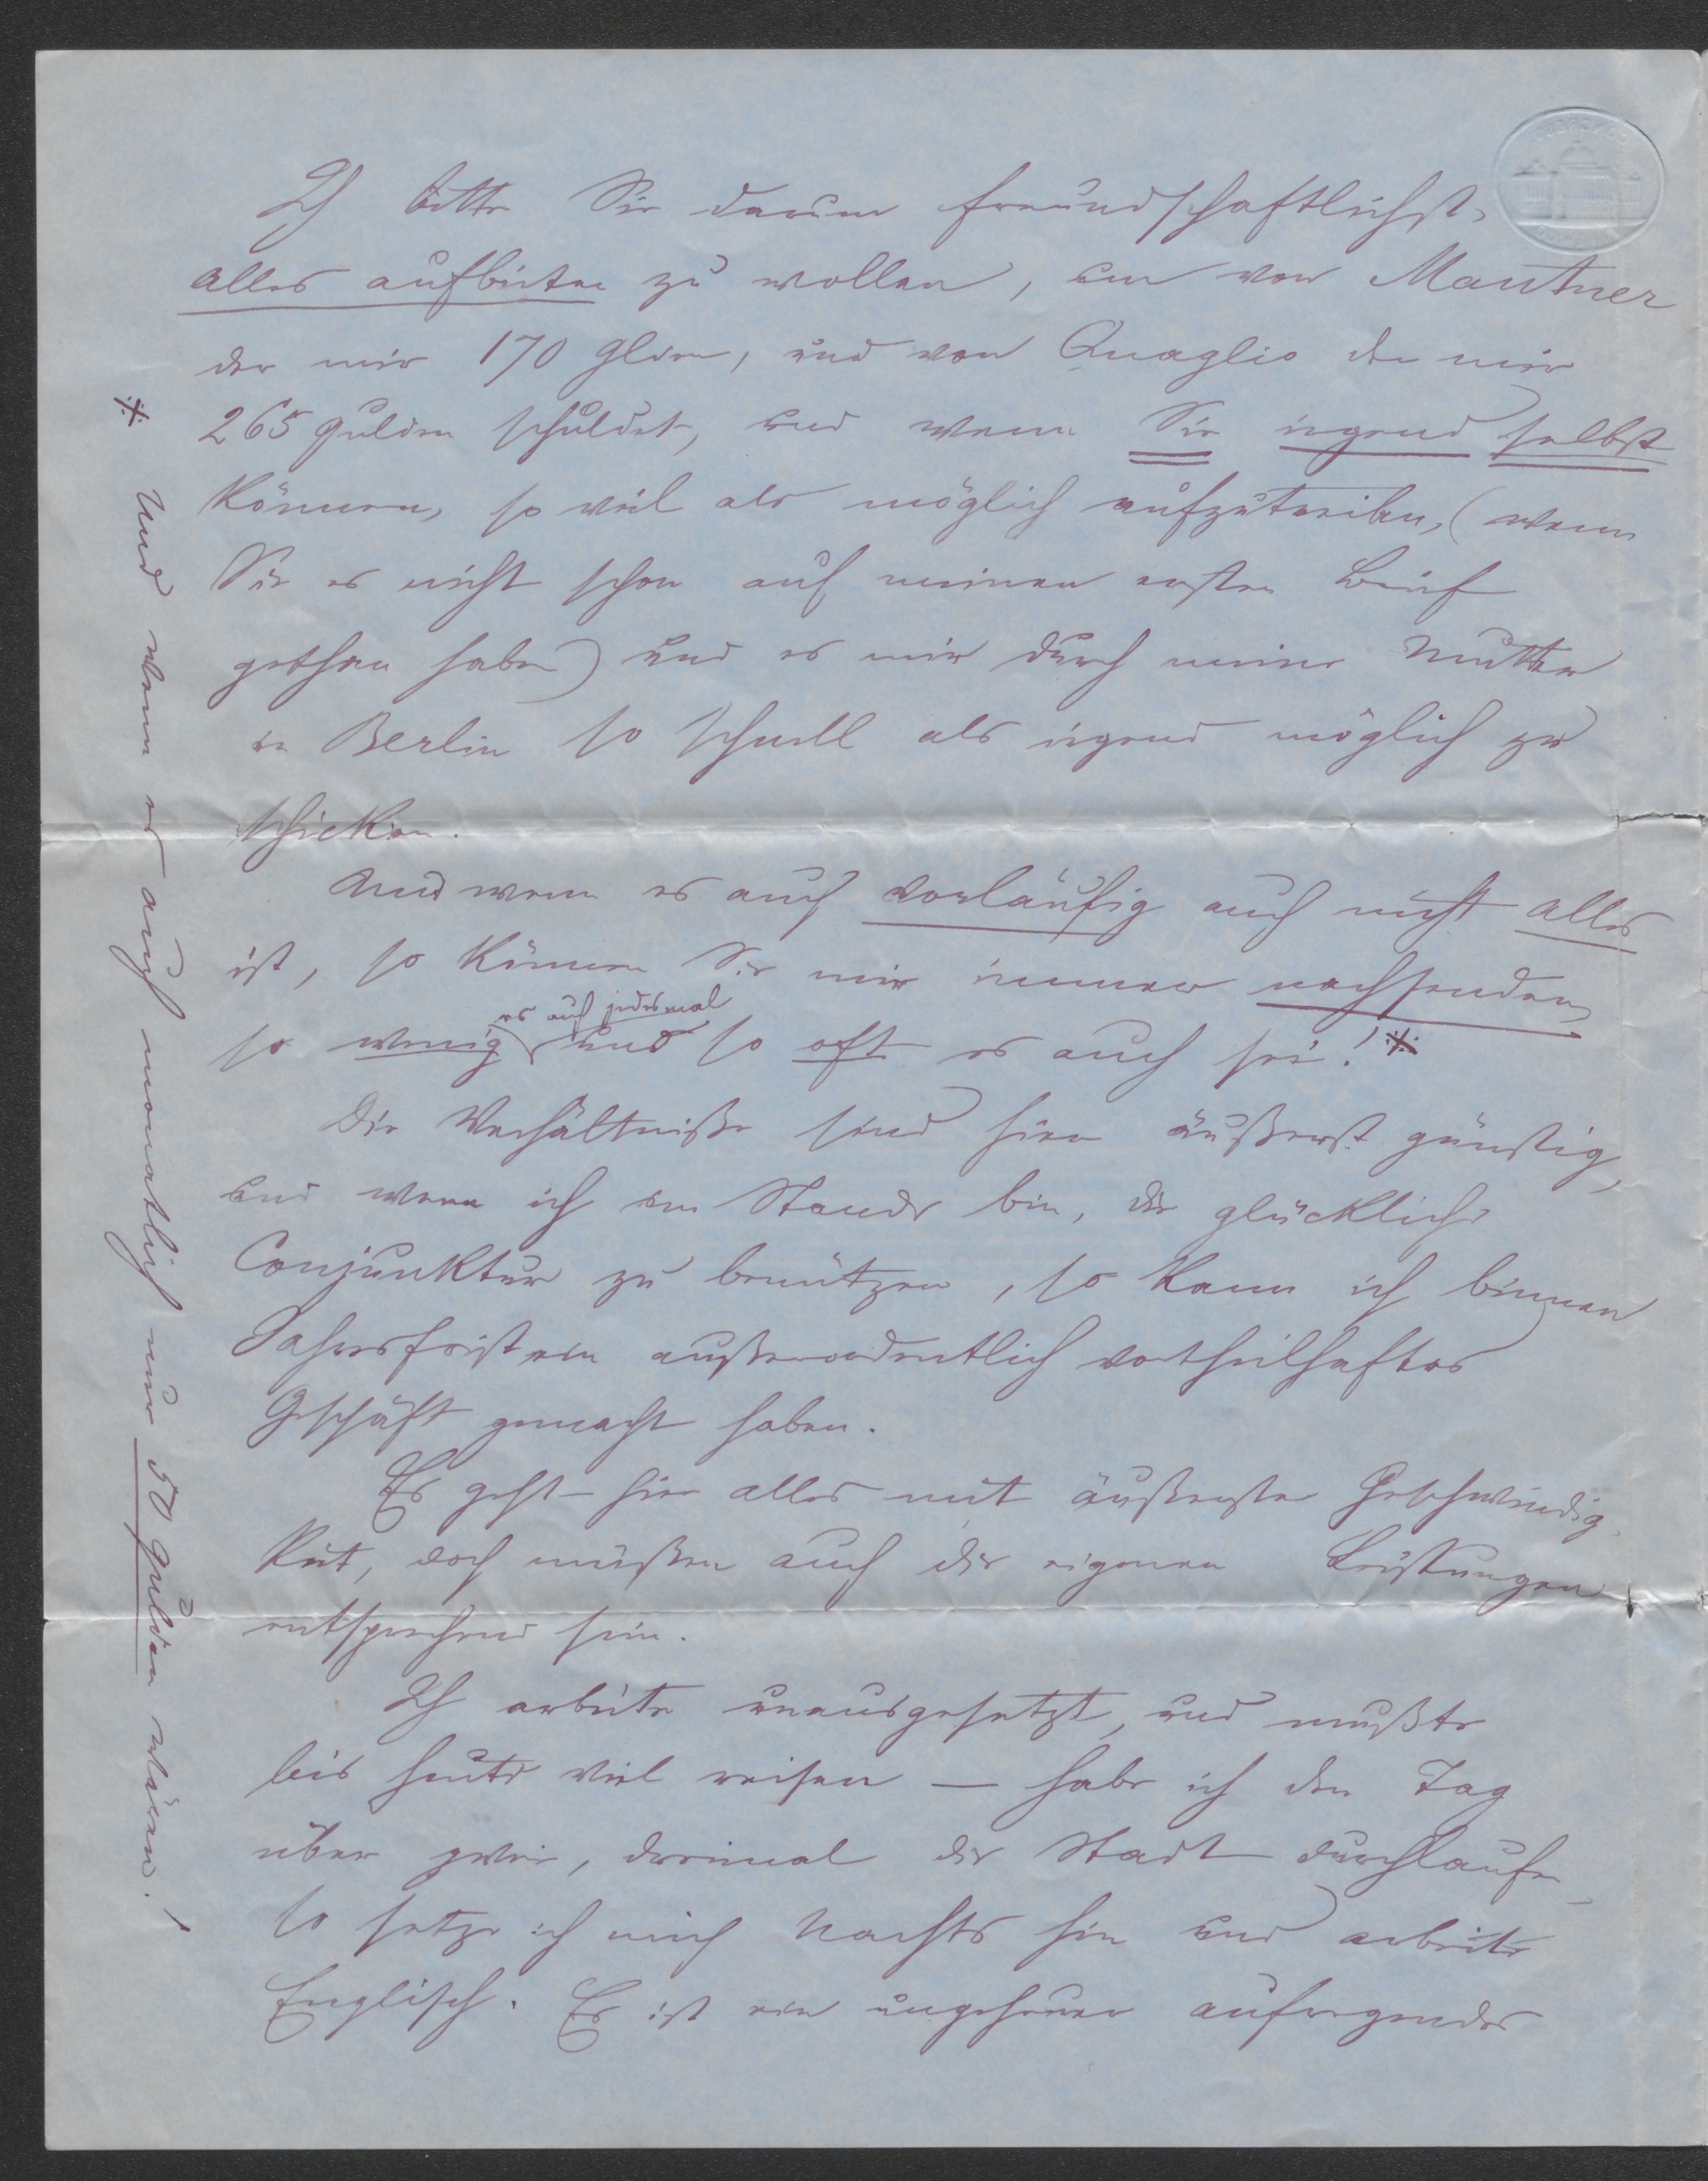 Ich bitte Sie darum freundschaftlichst,
alles aufbieten zu wollen, um von Mautner
der mir 170 Glden, und von Quaglio der mir
265 Gulden schuldet, und wenn Sie irgend selbst
können, so viel als möglich aufzutreiben, (wenn
Sie es nicht schon auf meinen ersten Brief
gethan haben) und es mir durch meine Mutter
in Berlin so schnell als irgend möglich zu
schicken.
Und wenn es auch vorläufig auch nicht alles
ist, so können Sie mir immer nachsenden,
es auch jedesmal
so wenig und so oft es auch sei! ※
Die Verhältniße sind hier äußerst günstig,
und wenn ich im Stande bin, die glückliche
Conjunktur zu benützen, so kann ich binnen
Jahresfrist ein außerordentlich vortheilhaftes
Geschäft gemacht haben.
Es geht hier alles mit äußerster Geschwindig-
keit, doch müßen auch die eigenen Leistungen
entsprechend sein.
Ich arbeite unausgesetzt, und mußte
bis heute viel reisen — habe ich den Tag
über zwei, dreimal die Stadt durchlaufen,
so setze ich mich Nachts hin und arbeite
Englisch. Es ist ein ungeheuer aufregendes
※ Und wenn es auch monatlich nur 50 Gulden wären!